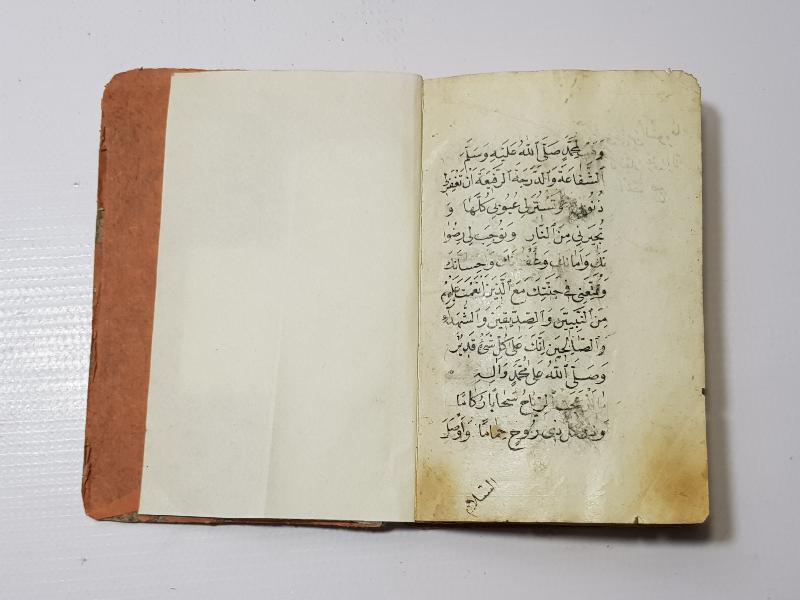 لِمُحَمَّدٍ صَلَّى اللهُ عَلَيْهِ وَسَلَّمَ
الشَّفَاعَةَ وَالدَّرَجَةَ الرَّفِيعَةَ اَنْ تَغْفِرَ
وَتَسْتُرَ لِي عُيُوبِي كُلَّهَا وَ
تُجِيرَنِي مِنَ النَّارِ وَتُوجِبَ لِي رِضْوَا
نَكَ وَاَمَانَكَ وَغُفْرَانَكَ وَاِحْسَانَكَ
وَتُمَتِّعَنِي فِي جَنَّتِكَ مَعَ الَّذِينَ اَنْعَمْتَ عَلَيْهِمْ
مِنَ النَّبِيِّينَ وَالصِّدِّيقِينَ وَالشُّهَدَاءِ
وَالصَّالِحِينَ اِنَّكَ عَلَى كُلِّ شَيْءٍ قَدِيرٌ
وَصَلَّى اللهُ عَلَى مُحَمَّدٍ وَاٰلِهِ
الرِّيَاحُ سَحَابًا رُكَامًا
كُلُّ ذِي رُوحٍ حِمَامًا وَاَوْصِلِ
السَّلَامَ